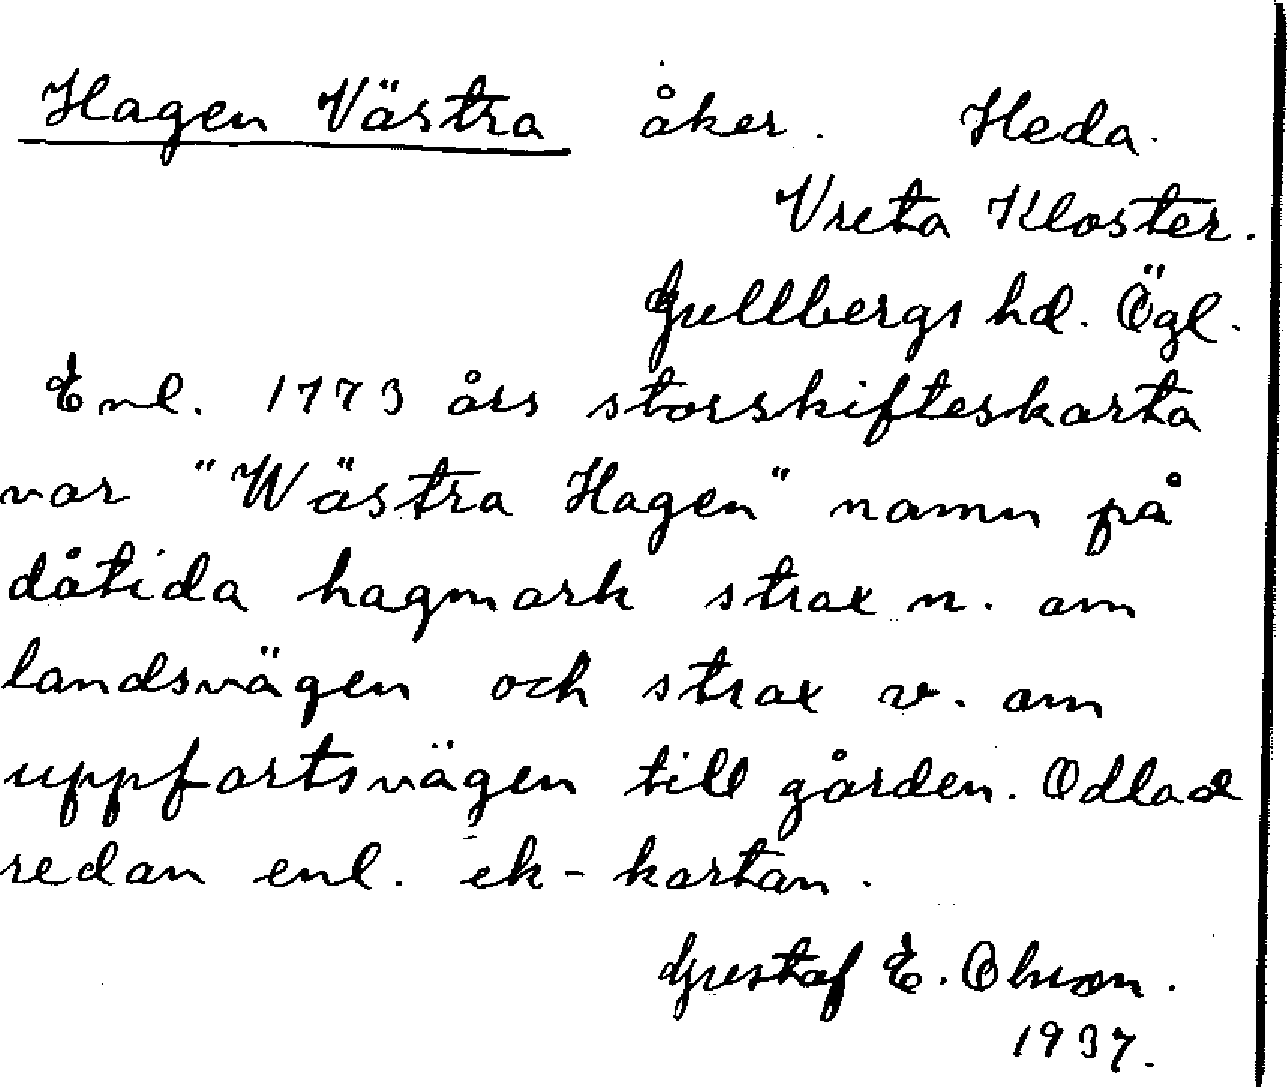 Hagen Västra åker. Heda.
Vreta Kloster.
Gullbergs hd. Ögl.
Enl. 1773 års storskifteskarta
var "Wästra Hagen" namn på
dåtida hagmark strax n. om
landsvägen och strax v. om
uppfartsvägen till gården. Odlad
redan enl. ek-kartan.
Gustaf E. Olsson.
1937.